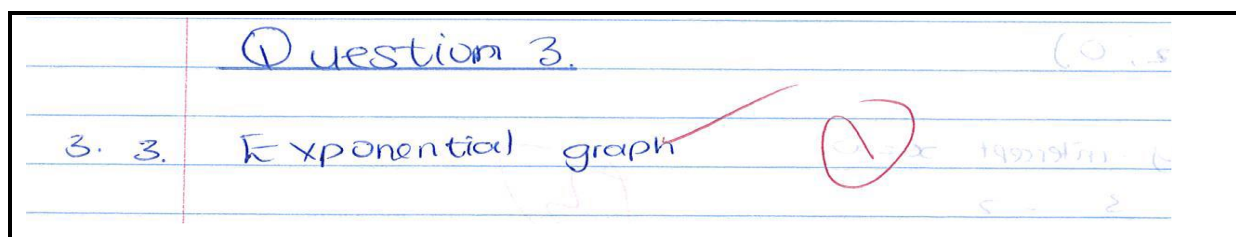 Question 3.
3. 3. Exponential graph 1